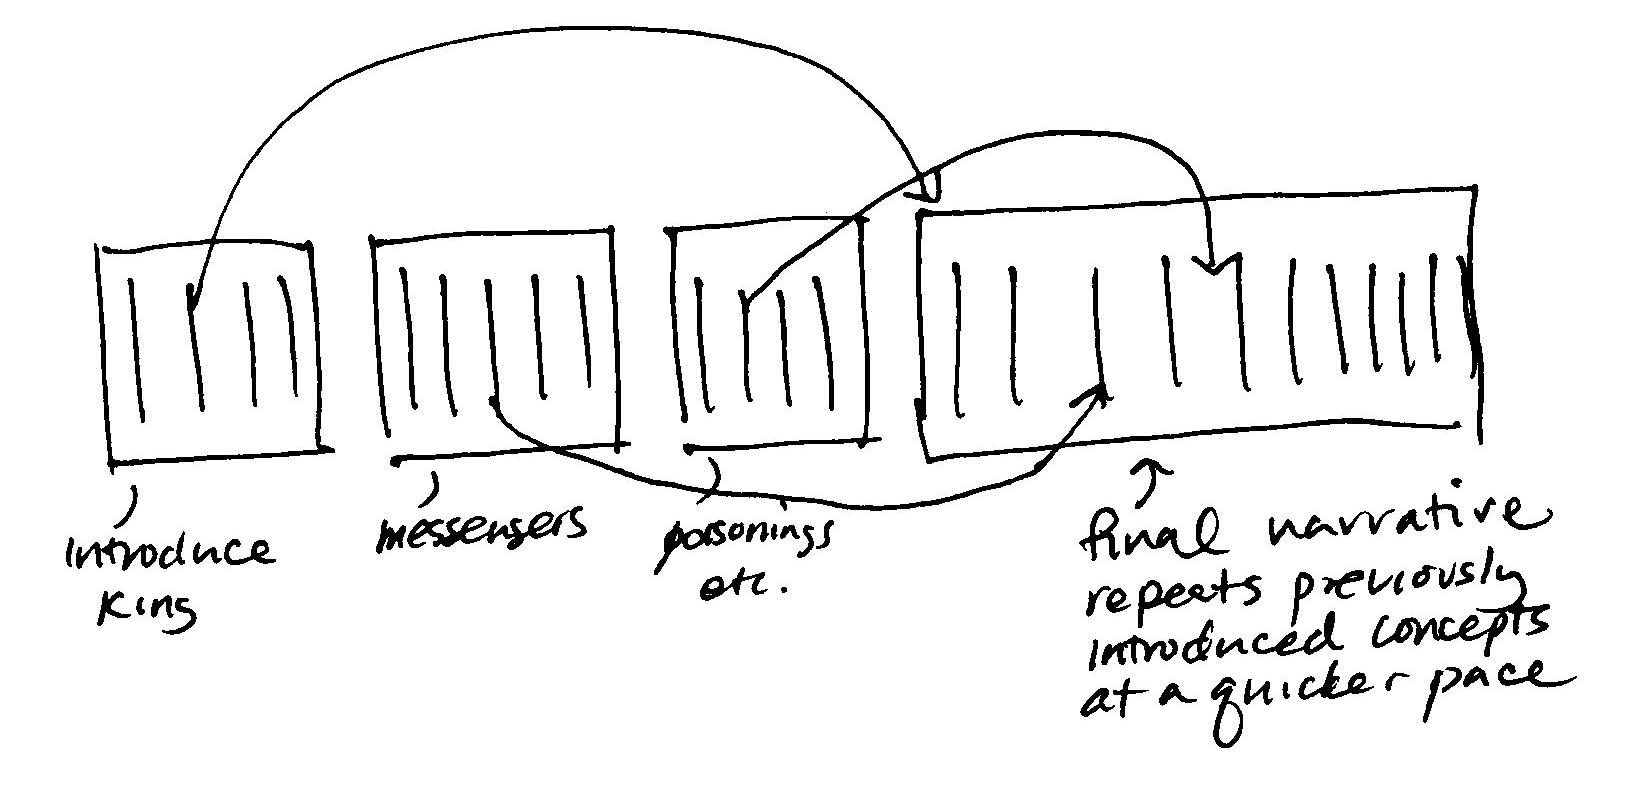 Introduce
King
messengers
poisonings
etc.
final narrative
repeats previously
introduced concepts
at a quicker pace